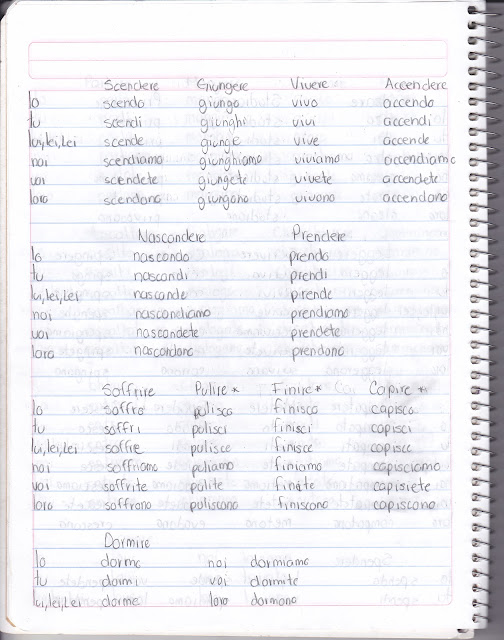 Scendere Giungere Vivere Accendere
Io scendo giungo vivo accendo
tu scendi giunghi vivi accendi
lui,lei,Lei scende giunge vive accende
noi scendiamo giunghiamo viviamo accendiamo
voi scendete giungete vivete accendete
loro scendono giungono vivono accendono
Nascondere Prendere
Io nascondo prendo
tu nascondi prendi
lui,lei,Lei nasconde prende
noi nascondiamo prendiamo
voi nascondete prendete
loro nascondono prendono
Soffrire Pulire * Finire * Capire *
Io soffro pulisco finisco capisco
tu soffri pulisci finisci capisci
lui,lei,Lei soffre pulisce finisce capisce
noi soffriamo puliamo finiamo capisciamo
voi soffrite pulite finite capisiete
loro soffrono puliscono finiscono capiscono
Dormire
Io dormo noi dormiamo
tu dormi voi dormite
lui,lei,Lei dorme loro dormono